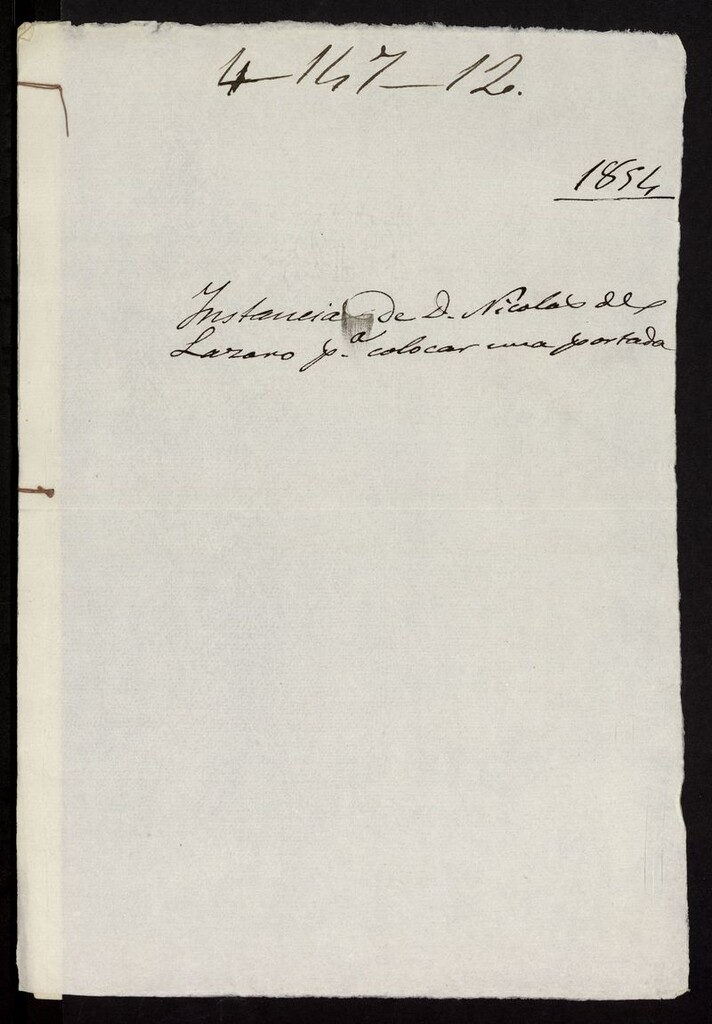 4-147-12.
1854
Instancia de D. Nicolas del
Lazaro p.a colocar una portada